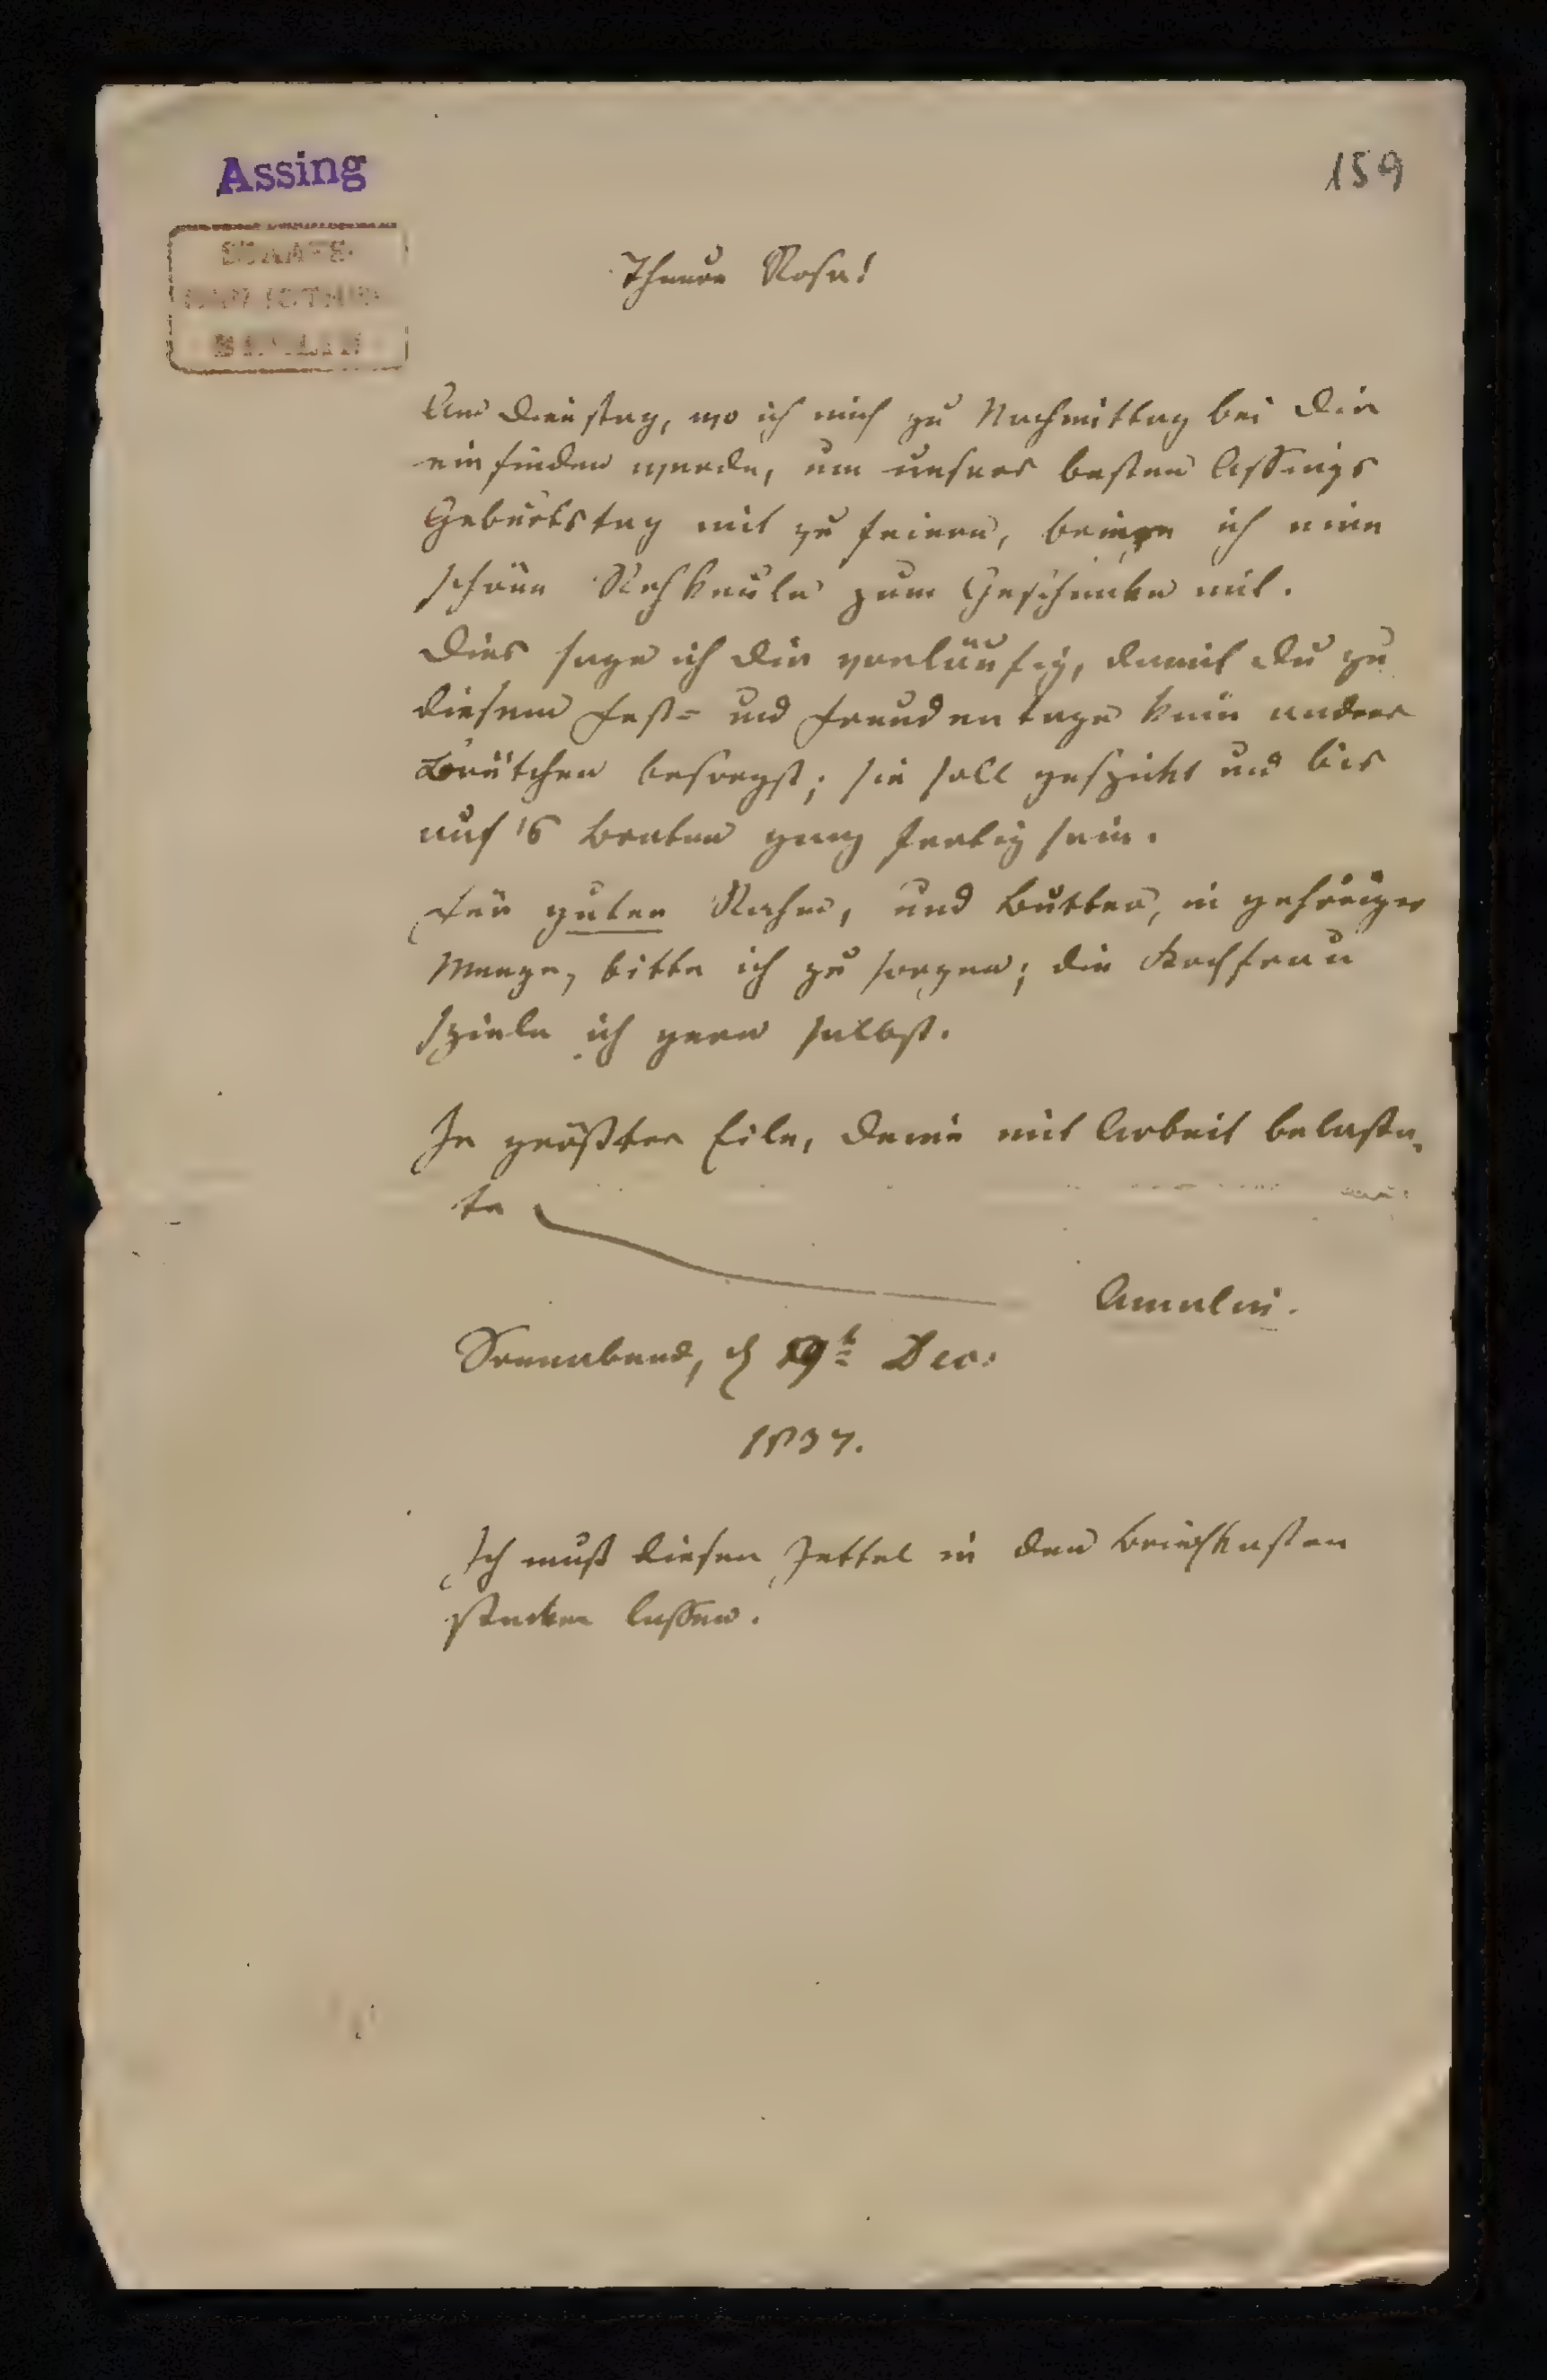 Assing
159
STAATS-
BIBLIOTHEK
BERLIN
Theure Rosa!
Am Dienstag, wo ich mich zu Nachmittag bei Dir
einfinden werde, um unsers besten Assings
Geburtstag mit zu feiern, bringe ich eine
schöne Rehkeule zum Geschenke mit.
Dies sage ich Dir vorläufig, damit Du zu
diesem Fest- und Freudentage kein andres
Brätchen besorgst; sie soll gespickt und bis
auf's Braten ganz fertig sein.
Für guten Rahm, und Butter, in gehöriger
Menge, bitte ich zu sorgen; die Kochfrau
spiele ich gern selbst.
In größter Eile, Deine mit Arbeit belaste-
te
Amalie.
Sonnabend, d 9t Dec.
1837.
Ich muß diesen Zettel in den Briefkasten
stecken lassen.